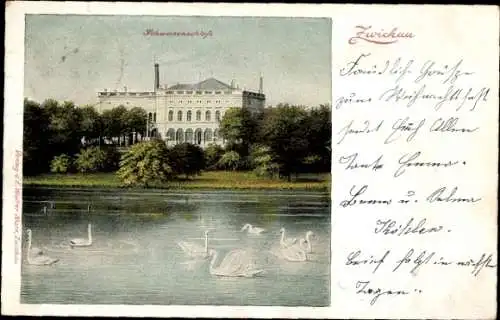 Schwanenschloß
Zwickau
Freundliche Grüße
zum Weihnachtsfest
sendet Euch Allen
Tante Emma
u. Selma
Brief folgt in nächst
Tagen.